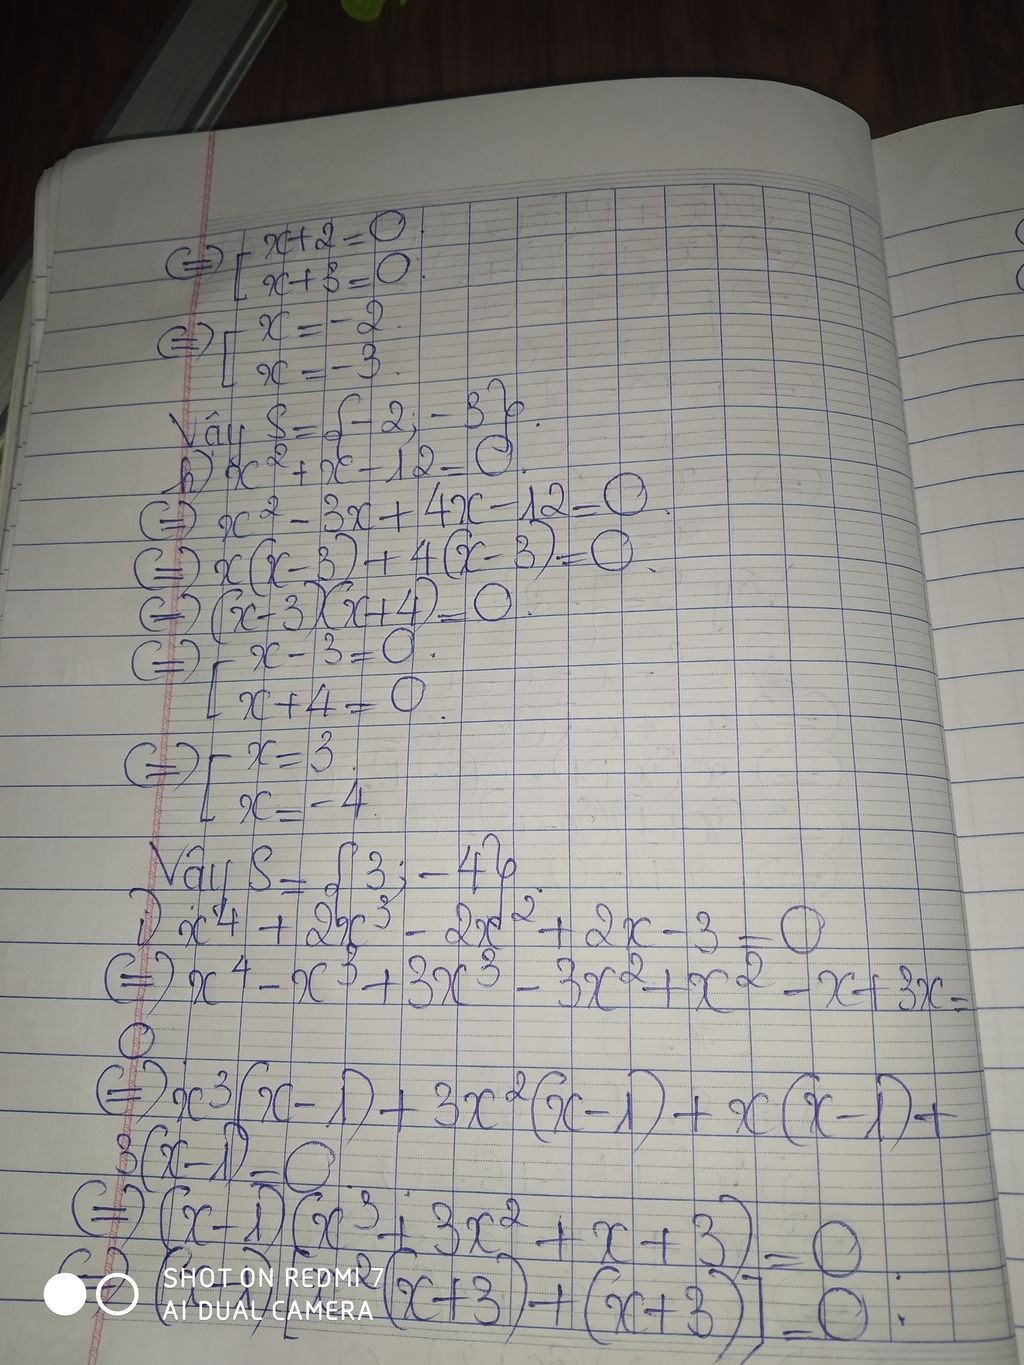 ⇔ [ x+2=0.
x+3=0.
⇔ [ x=-2.
x=-3.
Vậy S={-2;-3}.
h) x²+x-12=0.
⇔ x²-3x+4x-12=0.
⇔ x(x-3)+4(x-3)=0.
⇔ (x-3)(x+4)=0.
⇔ [ x-3=0.
x+4=0.
⇔ [ x=3.
x=-4.
Vậy S={3;-4}.
i) x⁴+2x³-2x²+2x-3=0
⇔ x⁴-x³+3x³-3x²+x²-x+3x=
0
⇔ x³(x-1)+3x²(x-1)+x(x-1)+
3(x-1)=0.
⇔ (x-1)(x³+3x²+x+3)=0.
⇔ (x-1)[x²(x+3)+(x+3)]=0.
SHOT ON REDMI 7
AI DUAL CAMERA